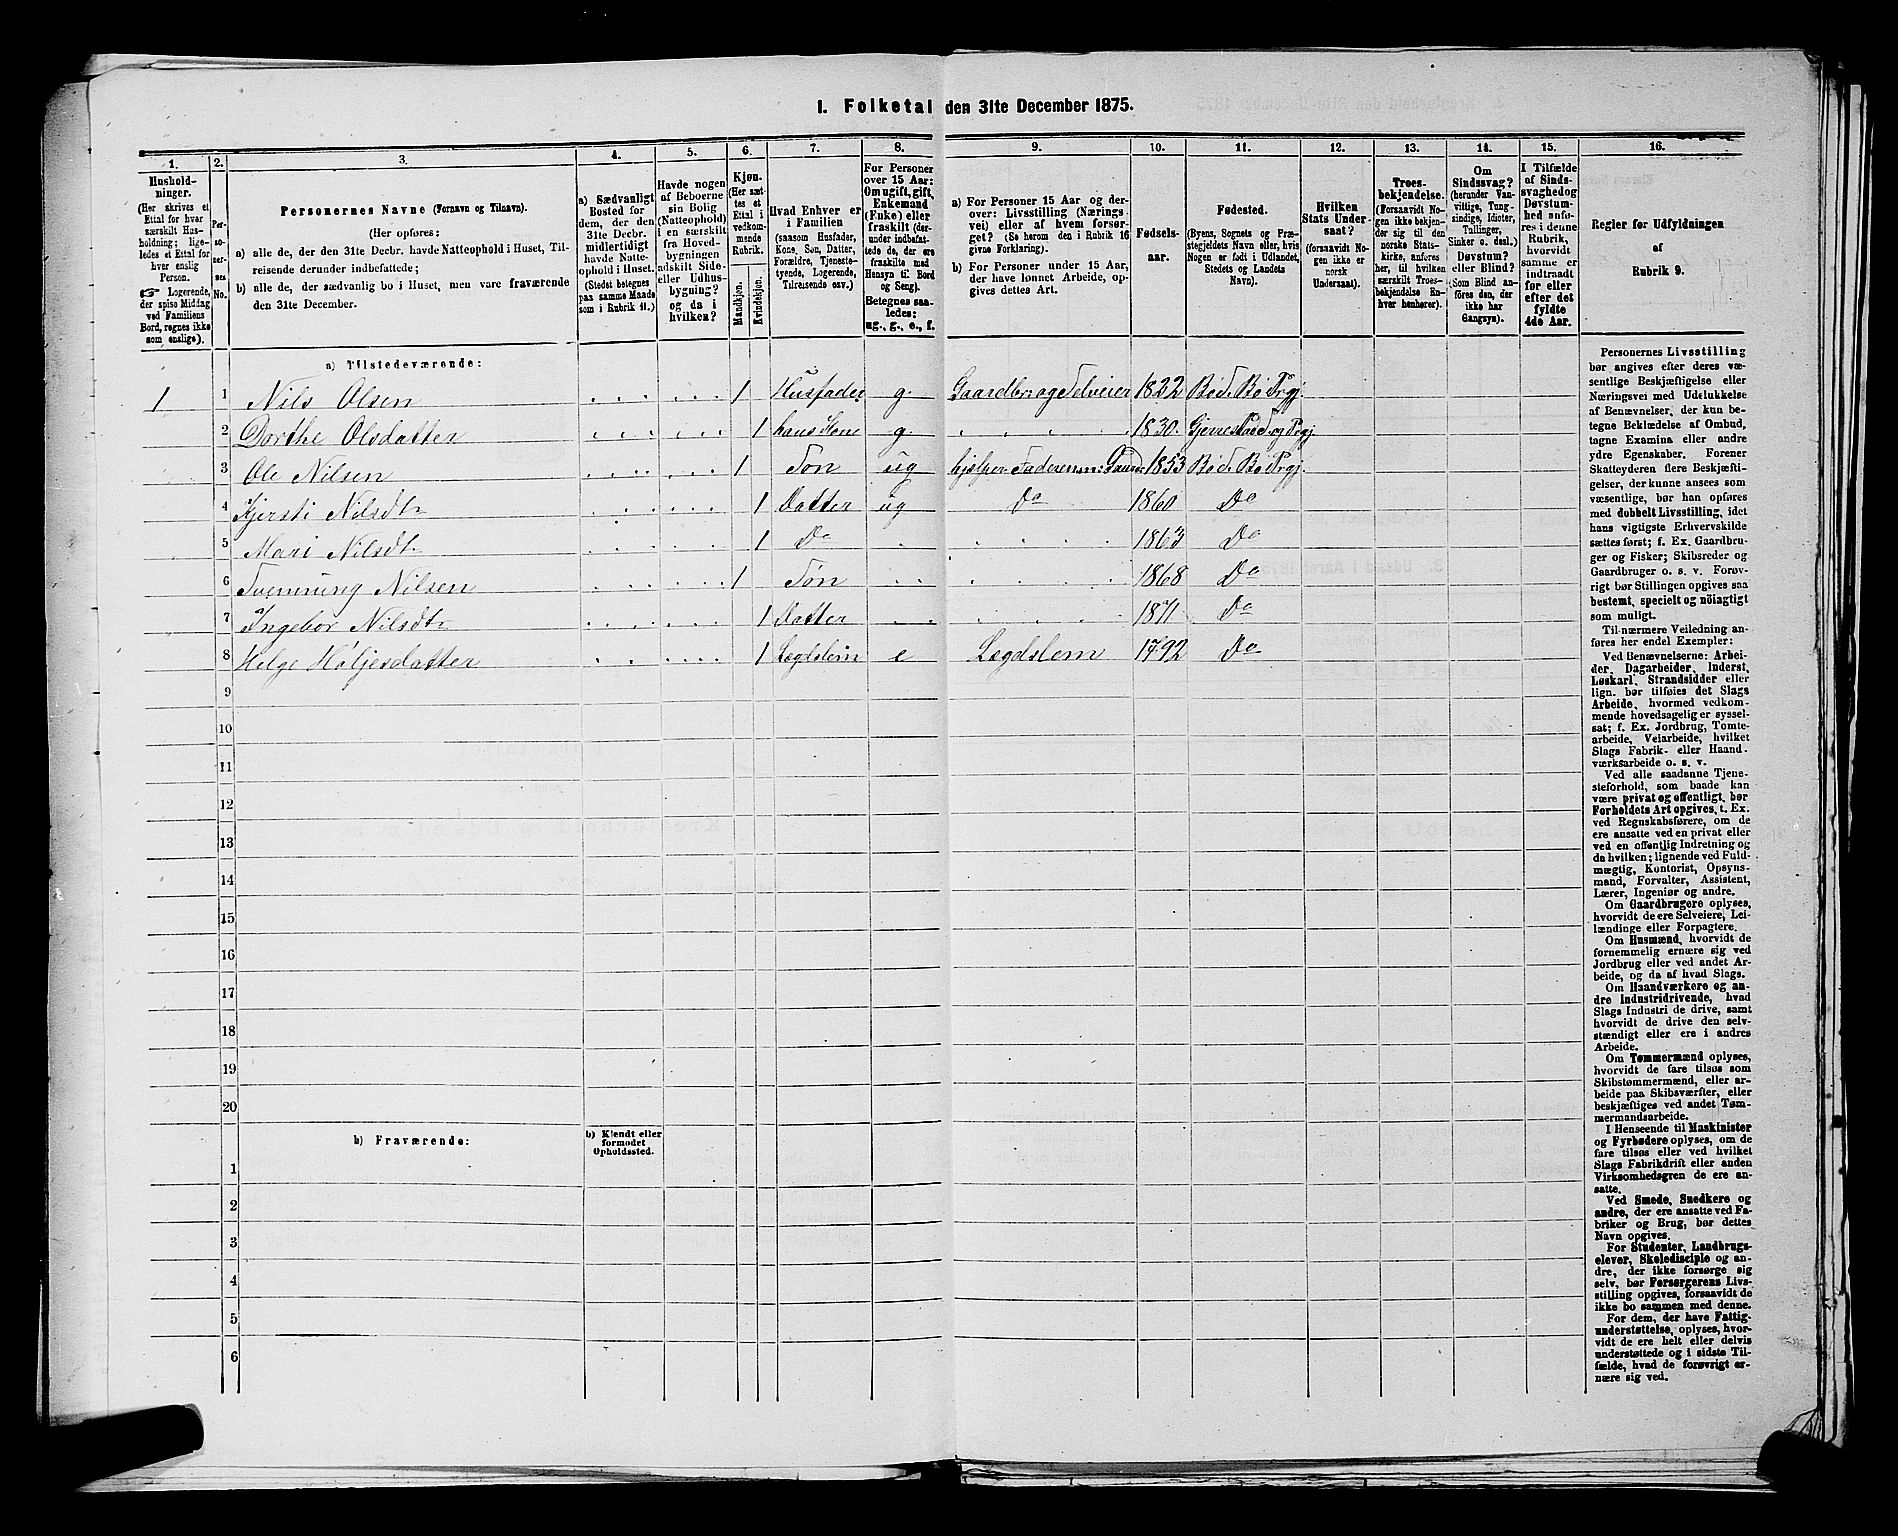 I. Folketal den 31te December 1875.
1. 2. 3. 4. 5. 6. 7. 8. 9. 10. 11. 12. 13. 14. 15. 16.
Hushold-
ninger.
(Her skrives et
Ettal for hver
særskilt Hus-
holdning; lige-
ledes et Ettal for
hver enslig
Person.
☞ Logerende,
der spise Middag
ved Familiens
Bord, regnes ikke
som enslige).
Per-
so-
ner-
nes
No.
Personernes Navne (Fornavn og Tilnavn).
(Her opføres:
a) alle de, der den 31te Decbr. havde Natteophold i Huset, Til-
reisende derunder indbefattede;
b) alle de, der sædvanlig bo i Huset, men vare fraværende
den 31te December.
a) Sædvanligt
Bosted for
dem, der den
31te Decbr.
midlertidigt
havde Natte-
ophold i Huset.
(Stedet betegnes
paa samme Maade
som i Rubrik 11.)
Havde nogen
af Beboerne
sin Bolig
(Natteophold)
i en særskilt
fra Hoved-
bygningen
adskilt Side-
eller Udhus-
bygning?
og da i
hvilken?
Kjøn.
(Her sæt-
tes et
Ettal i
vedkom-
mende
Rubrik.
Mandkjøn.
Kvindekjøn.
Hvad Enhver er
i Familien
(saasom Husfader,
Kone, Søn, Datter,
Forældre, Tjeneste-
tyende, Logerende,
Tilreisende osv.)
For Personer
over 15 Aar:
Om ugift, gift,
Enkemand
(Enke) eller
fraskilt (der-
under indbefat-
tede de, der ere
fraskilte med
Hensyn til Bord
og Seng).
Betegnes saa-
ledes:
ug., g., e., f.
a) For Personer 15 Aar og der-
over: Livsstilling (Nærings-
vei) eller af hvem forsør-
get? (Se herom den i Rubrik 16
givne Forklaring).
b) For Personer under 15 Aar,
der have lønnet Arbeide, op-
gives dettes Art.
Fødsels-
aar.
Fødested.
(Byens, Sognets og Præ-
stegjeldets Navn eller, hvis
Nogen er født i Udlandet,
Stedets og Landets
Navn).
Hvilken
Stats Under-
saat?
(forsaavidt No-
gen ikke er
norsk
Undersaat).
Troes-
bekjendelse.
(Forsaavidt No-
gen ikke bekjen-
der sig til den
norske Stats-
kirke, anføres
her, til hvilken
særskilt Troes-
bekjendelse En-
hver henhører).
Om
Sindssvag?
(herunder Van-
vittige, Tung-
sindige, Idioter,
Tullinger,
Sinker o. desl.)
Døvstum?
eller Blind?
(Som Blind an-
føres den, der
ikke har
Gangsyn).
I Tilfælde
af Sinds-
svaghed og
Døvstum-
hed anfø-
res i denne
Rubrik,
hvorvidt
samme er
indtraadt
før eller
efter det
fyldte
4de Aar.
Regler for Udfyldningen
af
Rubrik 9.
a) Tilstedeværende:
1 1 Nils Olsen 1 Husfader g. Gaardbr. og Selveier 1822 Bø S. Bø Prgj.
2 Dorthe Olsdatter 1 hans Kone g. 1830. Gjerrestad S. og Prgj.
3 Ole Nilsen 1 Søn ug hjelper Faderen m: 1853 Bø S. Bø Prgj.
4 Kjersti Nilsdtr 1 Datter ug Do 1860 Do
5 Mari Nilsdtr 1 Do 1863 Do
6 Svennung Nilsen 1 Søn 1868 Do
7 Ingebor Nilsdtr 1 Datter 1871 Do
8 Helge Høljesdatter 1 Lægdslem e Lægdslem 1792 Do
9
10
11
12
13
14
15
16
17
18
19
20
b) Fraværende:
b) Kjendt eller
formodet
Opholdssted.
1
2
3
4
5
6
Personernes Livsstilling
bør angives efter deres væ-
sentlige Beskjæftigelse eller
Næringsvei med Udelukkelse
af Benævnelser, der kun be-
tegne Beklædelse af Ombud,
tagne Examina eller andre
ydre Egenskaber. Forener
Skatteyderen flere Beskjæfti-
gelser, der kunne ansees som
væsentlige, bør han opføres
med dobbelt Livsstilling, idet
hans vigtigste Erhvervskilde
sættes først; f. Ex. Gaardbru-
ger og Fisker; Skibsreder og
Gaardbruger o. s. v. Forøv-
rigt bør Stillingen opgives saa
bestemt, specielt og nöiagtigt
som muligt.
Til nærmere Veiledning an-
føres her endel Exempler:
Ved Benævnelserne: Arbei-
der, Dagarbeider, Inderst,
Løskarl, Strandsidder eller
lign. bør tilføies det Slags
Arbeide, hvormed vedkom-
mende hovedsagelig er syssel-
sat; f. Ex. Jordbrug, Tomte-
arbeide, Veiarbeide, hvilket
Slags Fabrik- eller Haand-
værksarbeide o. s. v.
Ved alle saadanne Tjene-
steforhold, som baade kan
være privat og offentligt, bør
Forholdets Art opgives, t. Ex.
ved Regnskabsførere, om de
ere ansatte ved en privat eller
ved en offentlig Indretning og
da hvilken; lignende ved Fuld-
mægtig, Kontorist, Opsyns-
mand, Forvalter, Assistent,
Lærer, Ingeniør og andre.
Om Gaardbrugere oplyses,
hvorvidt de ere Selveiere, Lei-
lændinge eller Forpagtere.
Om Husmænd, hvorvidt de
fornemmelig ernære sig ved
Jordbrug eller ved andet Ar-
beide, og da af hvad Slags.
Om Haandværkere og an-
dre Industridrivende, hvad
Slags Industri de drive, samt
hvorvidt de drive den selv-
stændigt eller ere i andres
Arbeide.
Om Tømmermænd oplyses,
hvorvidt de fare tilsøs som
Skibstømmermænd, eller ar-
beide paa Skibsværfter, eller
beskjæftiges ved andet Tøm-
mermandsarbeide.
I Henseende til Maskinister
og Fyrbødere oplyses, om de
fare tilsøs eller ved hvilket
Slags Fabrikdrift eller anden
Virksomhedsgren de ere an-
satte.
Ved Smede, Snedkere og
andre, der ere ansatte ved Fa-
briker og Brug, bør dettes
Navn opgives.
For Studenter, Landbrugs-
elever, Skoledisciple og an-
dre, der ikke forsørge sig
selv, bør Forsørgerens Livs-
stilling opgives, forsaavidt de
ikke bo sammen med denne.
For dem, der have Fattig-
understøttelse, oplyses, hvor-
vidt de ere helt eller delvis
understøttede og i sidste Til-
fælde, hvad de forøvrigt er-
nære sig ved.